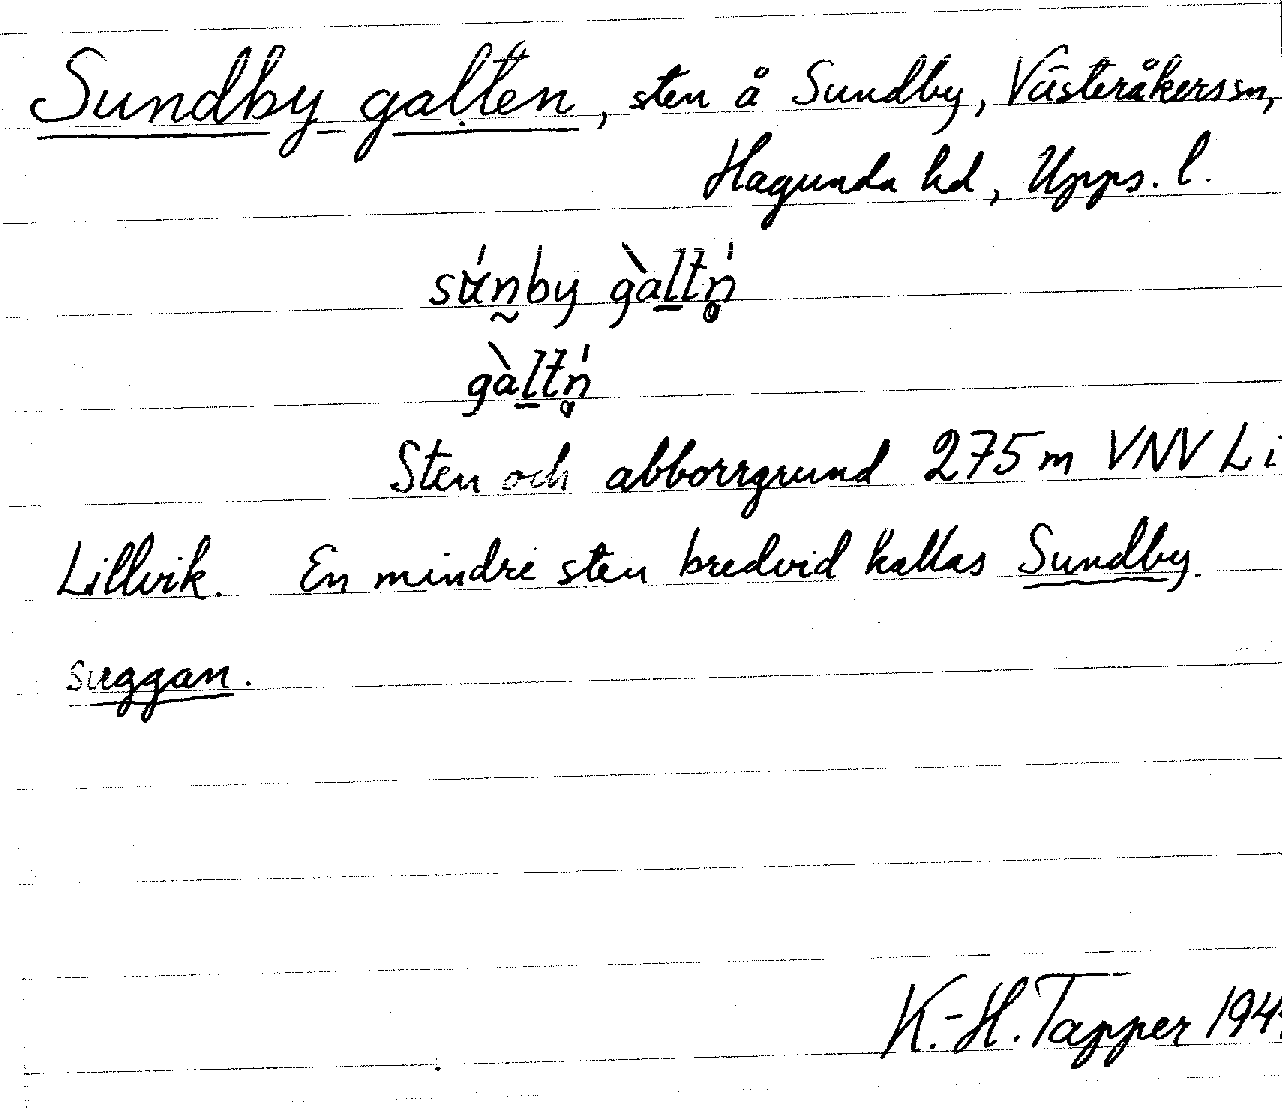 Sundby galten, sten å Sundby, Västeråkers sn,
Hagunda hd, Upps. l.
súnby gàltn̥
gàltn̥
Sten och abborrgrund 275 m VNV L i
Lillvik. En mindre sten bredvid kallas Sundby
suggan.
K.-H. Tapper 194